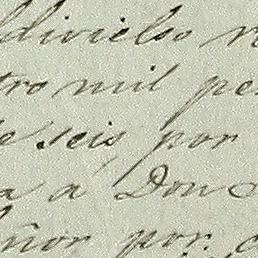 ldivielso
tro mil pe
e seis por
a á Don
eñor por